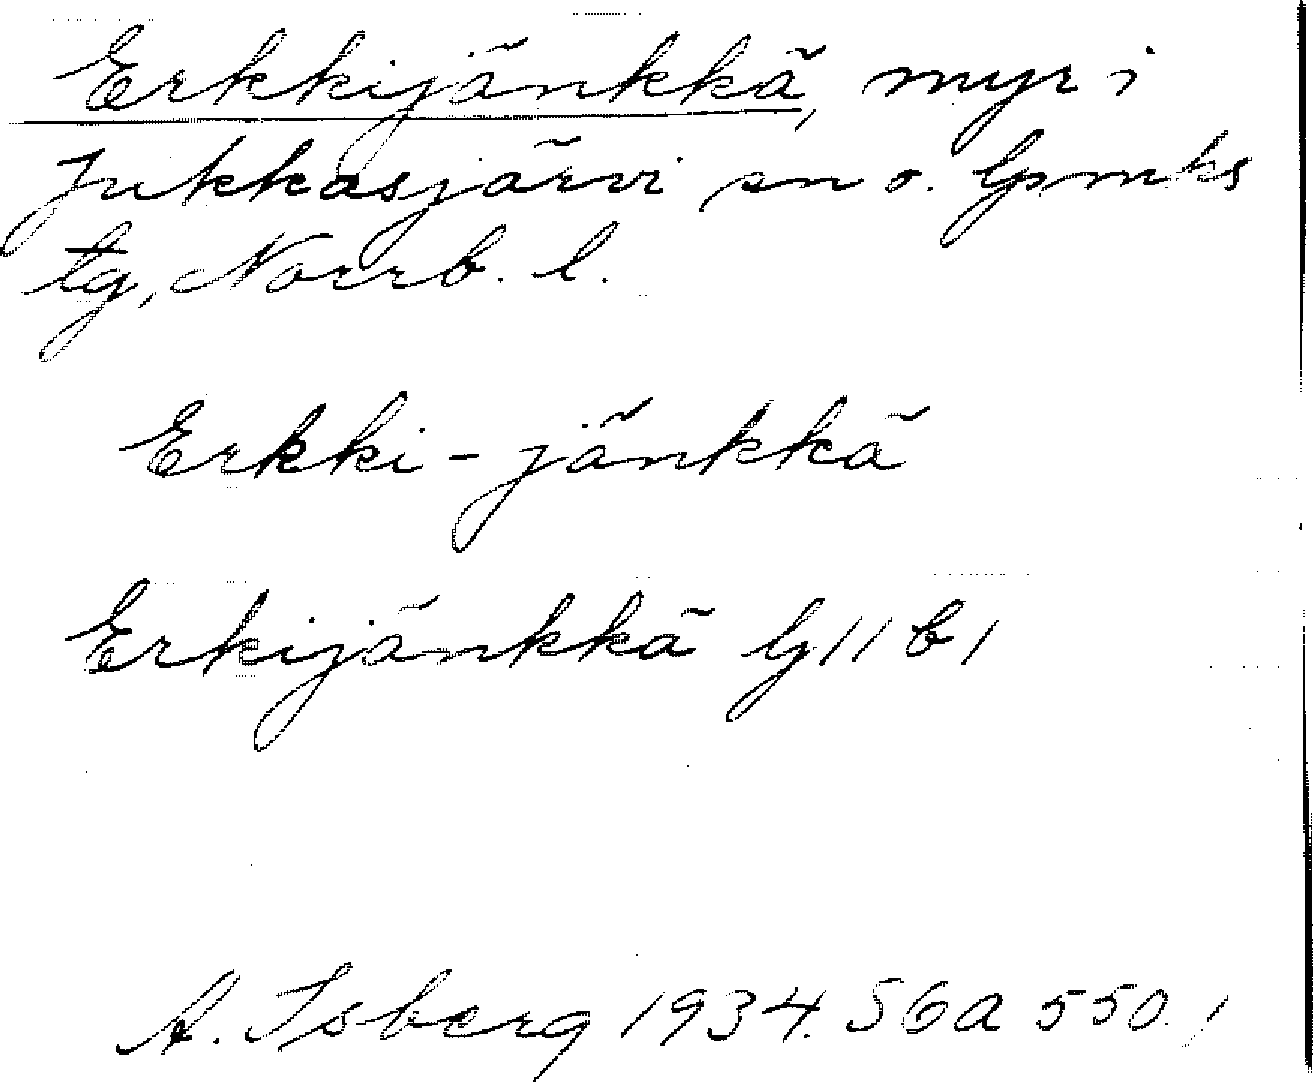 Erkkijänkkä, myr i
Jukkasjärvi sn o. lpmks
tg, Norrb. l.
Erkki - jänkkä
Erkijänkkä lj 11 b 1
A. Isberg 1934. S6a 550. 1